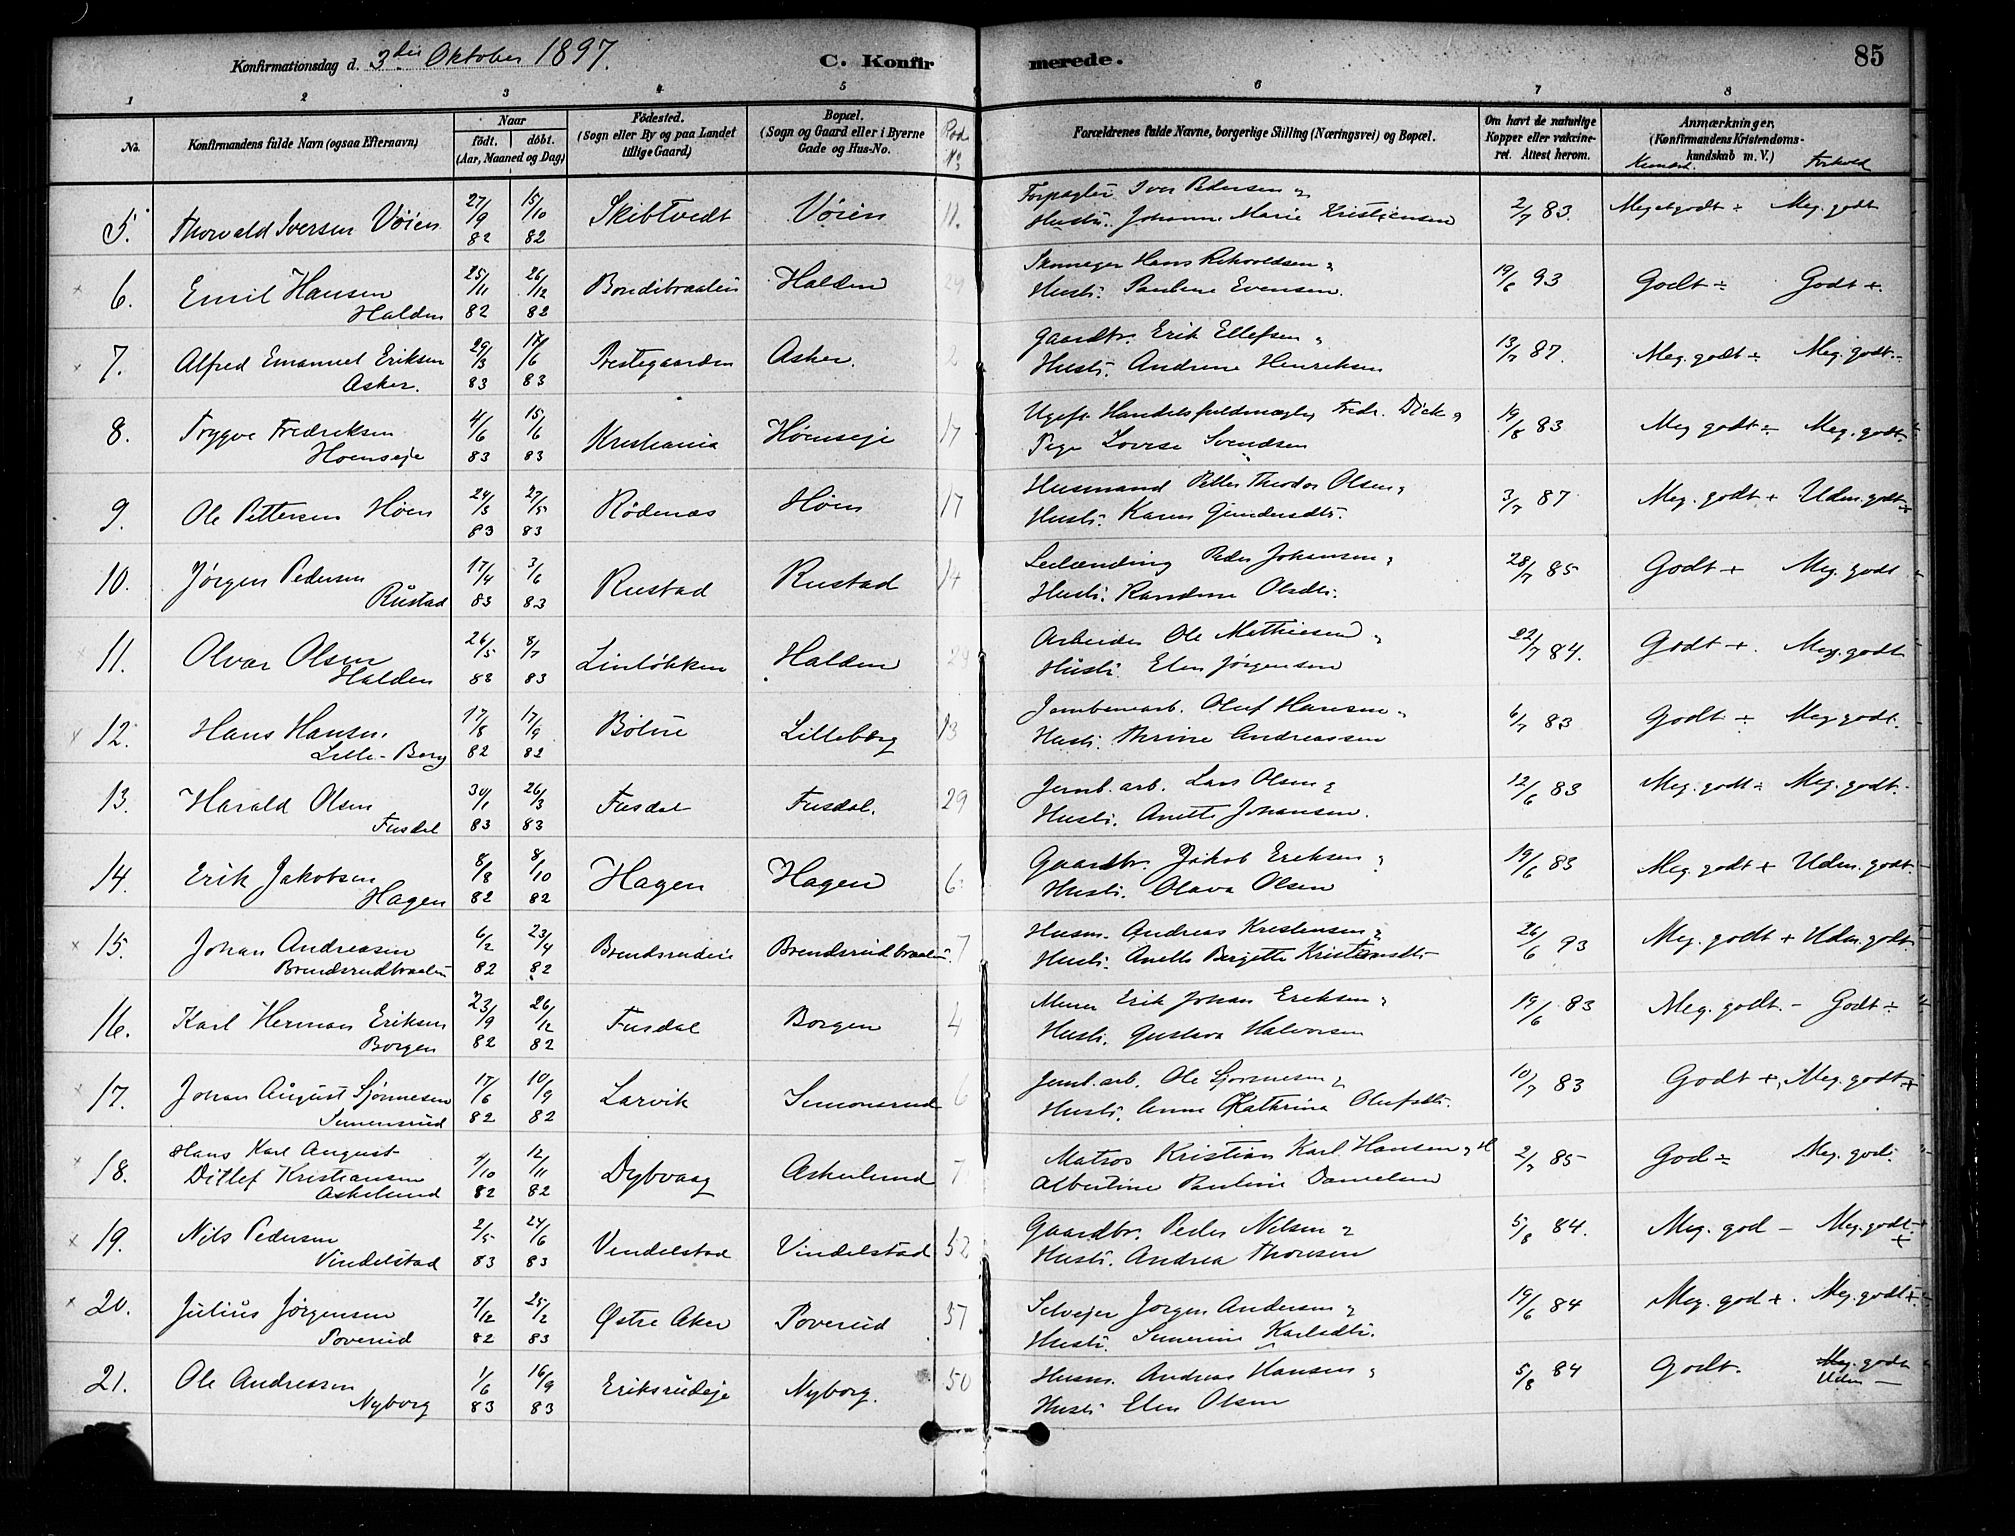 Konfirmationsdag d. 3die Oktober 1897. C. Konfirmerede. 85
1 2 3 4 5 6 7 8
No. Konfirmandens fulde Navn (ogsaa Efternavn) Naar født. døbt. (Aar, Maaned og Dag) Fødested. (Sogn eller By og paa Landet tillige Gaard) Bopæl. (Sogn og Gaard eller i Byerne Gade og Hus-No. Rod. No Forældrenes fulde Navne, borgerlige Stilling (Næringsvei) og Bopæl. Om havt de naturlige Kopper eller vakcineret. Attest herom. Anmærkninger, (Konfirmandens Kristendomskundskab m. V.) Kundsk. Forhold
5. Thorvald Iversen Vøien 27/9 82 15/10 82 Skibtvedt Vøien 11. Forpagter Iver Pedersen og
Hustr. Johanne Marie Kristiensen 2/7 83. Meget godt ÷ Meg. godt
6. Emil Hansen Halden 25/11 82 26/12 82 Bondibraaten Halden 29 Skomager Hans Rehoroldsen og
Hustr. Pauline Evensen. 19/6 93 Godt ÷ Godt +.
7. Alfred Emanuel Eriksen Asker. 29/3 83 17/6 83 Prestegaarden Asker. 2 Gaardbr. Erik Ellefsen og
Hustr. Andrine Henriksen 13/7 87. Meg. godt ÷ Meg. godt.
8. Trygve Fredriksen Hoenseje 4/6 83 15/6 83 Kristiania Hønseje 17 Ugift Handelsfuldmægtig Fredr. Dick og
Pige Lovise Svendsen 19/8 83 Meg godt ÷ Meg. godt
9. Ole Pettersen Høen 24/3 83 27/5 83 Rødenæs Høen 17 Husmand Petter Theodor Olsen og
Hustr. Karen Gundersdtr. 3/7 87 Meg. godt + Udm. godt
10. Jørgen Pedersen Rustad 17/4 83 3/6 83 Rustad Rustad 14 Leilænding Peder Johansen og
Hustr. Randine Olsdtr. 28/7 85 Godt + Meg. godt
11. Olvar Olsen Halden 26/5 83 8/7 83 Linløkken Halden 29 Arbeider Ole Mathiesen og
Hustr. Elen Jørgensen 22/7 84. Godt +. Meg. godt
12. Hans Hansen. Lille-Borg 17/8 82 17/9 82 Bølue Lilleborg 13 Jernbanearb. Oluf Hansen og
Hustr. Thrine Andreassen 6/7 83 Godt ÷ Meg godt.
13. Harald Olsen Fusdal 30/1 83 26/3 83 Fusdal Fusdal. 29 Jernb. arb. Lars Olsen og
Hustr. Anette Johansen. 12/6 83 Meg. godt ÷ Meg. godt.
14. Erik Jakobsen Hagen 8/8 82 8/10 82 Hagen Hagen 6. Gaardbr. Jakob Eriksen og
Hustr. Olava Olsen 19/6 83 Meg. godt + Udm. godt.
15. Johan Andreasen Brendsrudbraaten 6/2 82 23/4 82 Brendsrudeie Brendsrudbraaten. 7 Husm. Andreas Kristensen og
Hustr. Anette Birgitte Kristiansdtr 26/6 93 Meg. godt + Udm. godt.
16. Karl Herman Eriksen Borgen 23/9 82 26/12 82 Fusdal Borgen 4 Murer Erik Johan Eriksen og
Hustr. Gustava Halvorsen 19/6 83 Meg. godt. - Godt ÷
17. Johan August Sjønnesen Simensrud 17/6 82 10/9 82 Larvik Simonsrud 6 Jernb. arb. Ole Sjønnesen og
Hustr. Anne Kathrina Olufsdtr. 10/7 83 Godt +, Meg. godt +
18. Hans Karl August
Ditlef Kristiansen Askelund 4/10 82 12/11 82 Dybvaag Askelund 7 Matros Kristian Karl Hansen og H
Albertine Pauline Danielsen 2/7 85 God ÷ Meg. god.
19. Nils Pedersen Vindelstad 2/5 83 24/6 83 Vendelstad Vindelstad 52 Gaardbr. Peder Nilsen og
Hustr. Andrea Thoresen 5/8 84. Meg. god - Meg. godt. +
20. Julius Jørgensen Poverud 7/12 82 25/2 83 Østre Aker Poverud 37 Selveier Jørgen Andersen og
Hustr. Simerine Karlsdtr. 19/6 84 Meg. god +. Meg. godt +.
21. Ole Andreasen Nyborg 1/6 83 16/9 83 Eriksrudeje Nyborg. 50 Husm. Andreas Hansen og
Hustr Elen Olsen 5/8 84 Godt. Meg. godt
Udm -